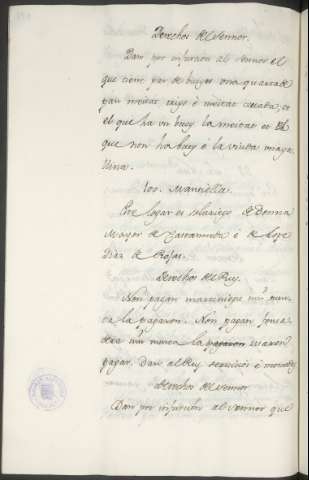 Derechos del Sennor.
Dan por infurcion al sennor el
que tiene par de bueyes una quarta de
pan meitat trigo é meitat cevada, et
el que ha un buey la meitat et El
que non ha buey é la viuda maqui
llina.
Mansiella.
Este logar es solariego de Donna
Mayor de Castannieda é de Lope
Diaz de Rojas.
Derechos del Rey.
Non pagan martiniega nin nun-
ca la pagaron. Non pagan fonsa-
dera nin nunca la pagaron usaron
pagar. Dan al Rey servicios é monedas
Derechos del Sennor
Dan por infurcion al sennor que